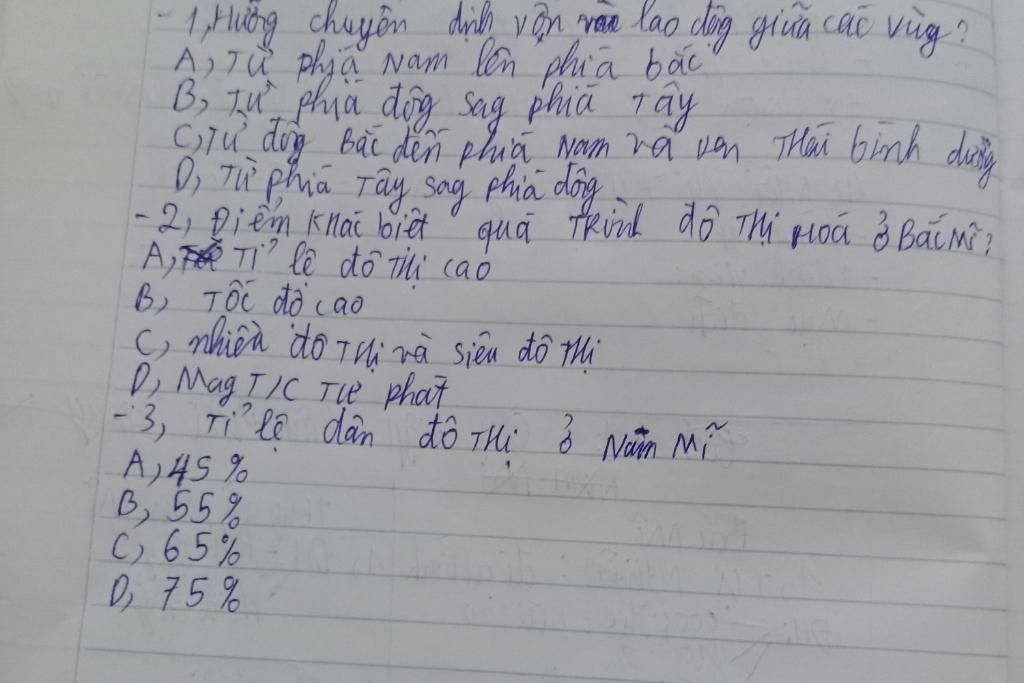 - 1, Hướg chuyển dịch vốn và lao độg giữa các vùg?
A, Từ phía Nam lên phía bắc
B, Từ phía đôg sag phía Tây
C, Từ đôg Bắc đến phía Nam và ven Thái bình dươg
D, Từ phía Tây sag phía đôg
- 2, Điểm khác biệt quá Trình đô Thị Hoá ở Bắc Mĩ?
A, Tỉ lệ đô Thị cao
B, Tốc độ cao
C, nhiều đô Thị và siêu đô Thị
D, Mag T/C Tự phát
- 3, Tỉ lệ dân đô Thị ở Nam Mĩ
A, 45%
B, 55%
C, 65%
D, 75%